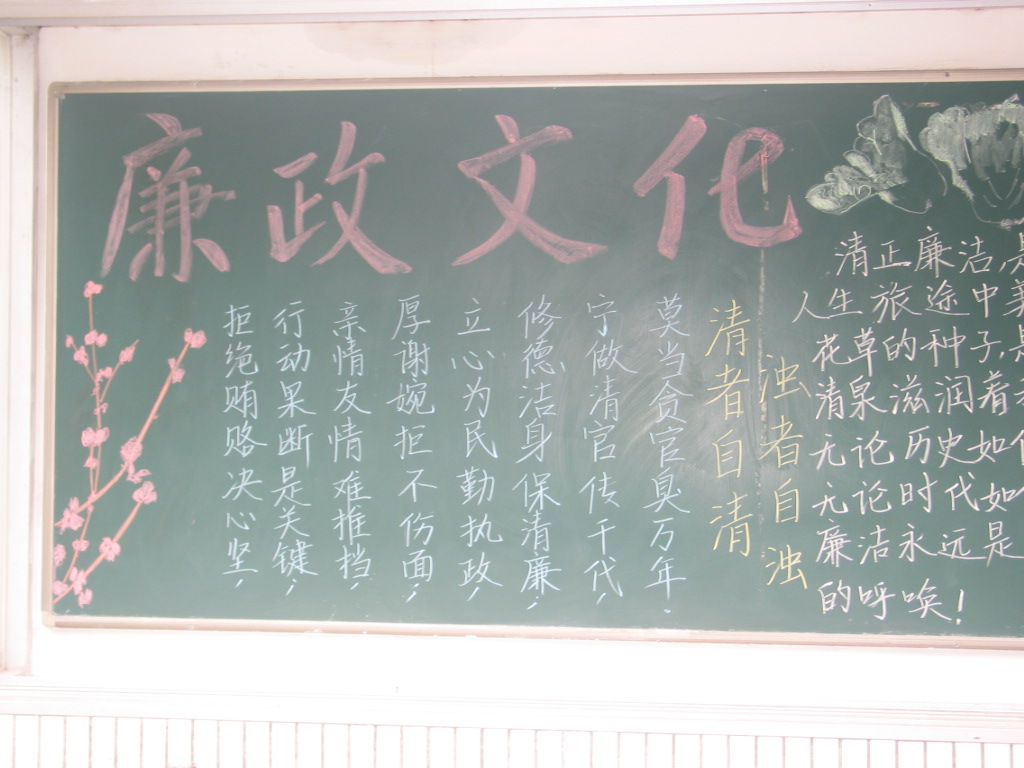 廉政文化
拒绝贿赂决心坚,
行动果断是关键,
亲情友情难推挡,
厚谢婉拒不伤面,
立心为民勤执政,
修德洁身保清廉,
宁做清官传千代,
莫当贪官臭万年.
清者自清
浊者自浊
清正廉洁,是
人生旅途中美
花草的种子,是
清泉滋润着
无论历史如
无论时代如
廉洁永远是
的呼唤!